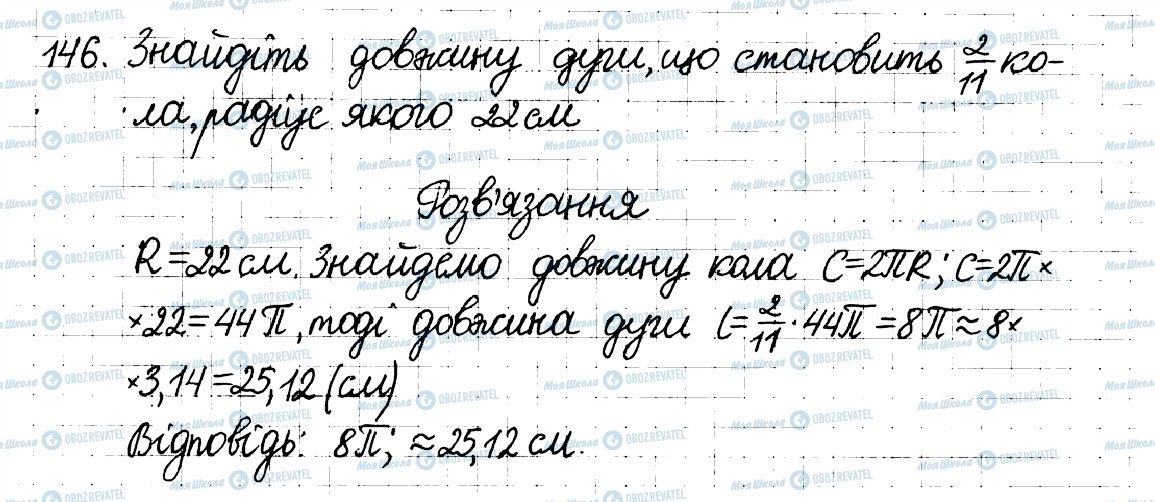 146. Знайдіть довжину дуги, що становить 2/11 ко-
ла, радіус якого 22 см
Розв'язання
R = 22 см. Знайдемо довжину кола C = 2πR; C = 2π ×
× 22 = 44π, тоді довжина дуги l = 2/11 · 44π = 8π ≈ 8 ×
× 3,14 = 25,12 (см)
Відповідь: 8π; ≈ 25,12 см.